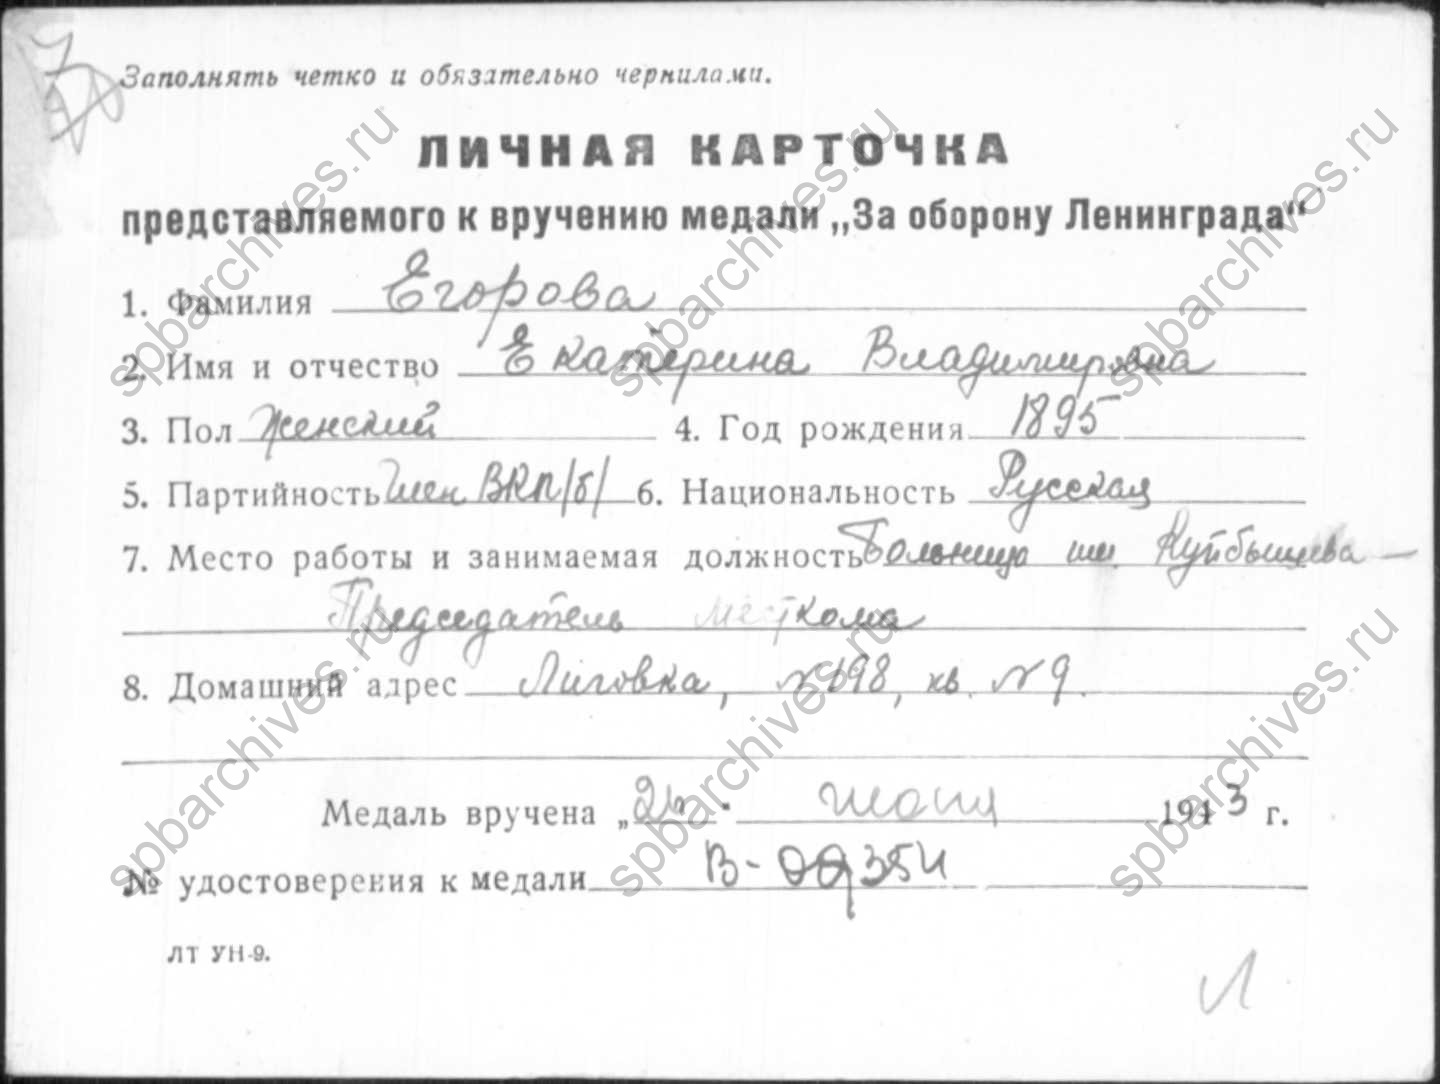 Заполнять четко и обязательно чернилами.
ЛИЧНАЯ КАРТОЧКА
представляемого к вручению медали „За оборону Ленинграда“
1. Фамилия Егорова
2. Имя и отчество Екатерина Владимировна
3. Пол Женский 4. Год рождения 1895
5. Партийность член ВКП/б/ 6. Национальность Русская
7. Место работы и занимаемая должность Больница им. Куйбышева —
Председатель месткома
8. Домашний адрес Лиговка, № 198, кв. № 9.
Медаль вручена „ " июня 1943 г.
№ удостоверения к медали В-
ЛТ УН-9.
Л
spbarchives.ru
spbarchives.ru
spbarchives.ru
spbarchives.ru
spbarchives.ru
spbarchives.ru